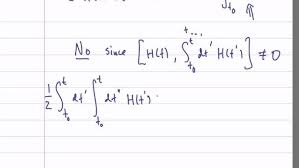 ∫t₀
No since [H(t), ∫_{t₀}^{t...} dt' H(t')] ≠ 0
1/2 ∫_{t₀}^{t} dt' ∫_{t₀}^{t} dt" H(t')